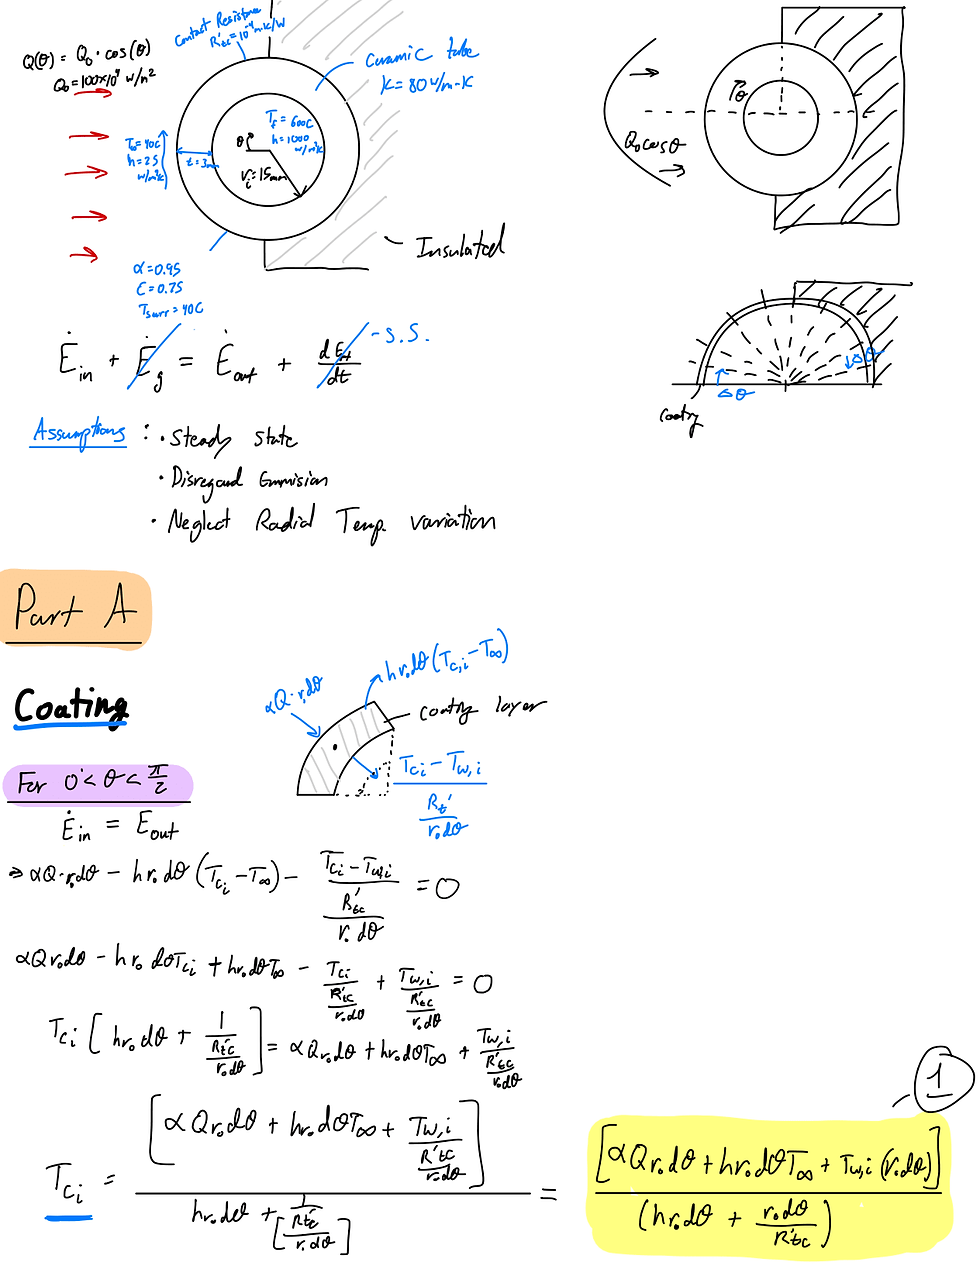 Contact Resistance
R'tc = 10⁻⁴ m·K/W
Q(θ) = Q₀ · cos(θ)
Q₀ = 100×10⁴ W/m²
Ceramic tube
K = 80 W/m-K
T∞ = 40C
h = 25
W/m²K
t = 3mm
θ
T_f = 600C
h = 1000
W/m²K
r_i = 15mm
Insulated
α = 0.95
Ɛ = 0.75
Tsurr = 40C
Tθ
Q₀cosθ
Δθ
Δθ
Coating
Ė_in + Ė_g = Ė_out + dE_t/dt - S.S.
Assumptions : • Steady State
• Disregard Emmision
• Neglect Radial Temp. variation
Part A
Coating
αQ·r₀dθ
hr₀dθ(T_c,i - T∞)
coating layer
(T_ci - T_w,i) / (R_t' / r₀dθ)
For 0 < θ < π/2
Ė_in = E_out
⇒ αQ·r₀dθ - hr₀dθ(T_ci - T∞) - (T_ci - T_w,i) / (R'tc / r₀dθ) = 0
αQr₀dθ - hr₀dθT_ci + hr₀dθT∞ - T_ci / (R'tc / r₀dθ) + T_w,i / (R'tc / r₀dθ) = 0
T_ci [hr₀dθ + 1 / (R'tc / r₀dθ)] = αQr₀dθ + hr₀dθT∞ + T_w,i / (R'tc / r₀dθ)
1
T_ci = [αQr₀dθ + hr₀dθT∞ + T_w,i / (R'tc / r₀dθ)] / (hr₀dθ + 1 / [R'tc / r₀dθ]) = [αQr₀dθ + hr₀dθT∞ + T_w,i(r₀dθ)] / (hr₀dθ + r₀dθ / R'tc)